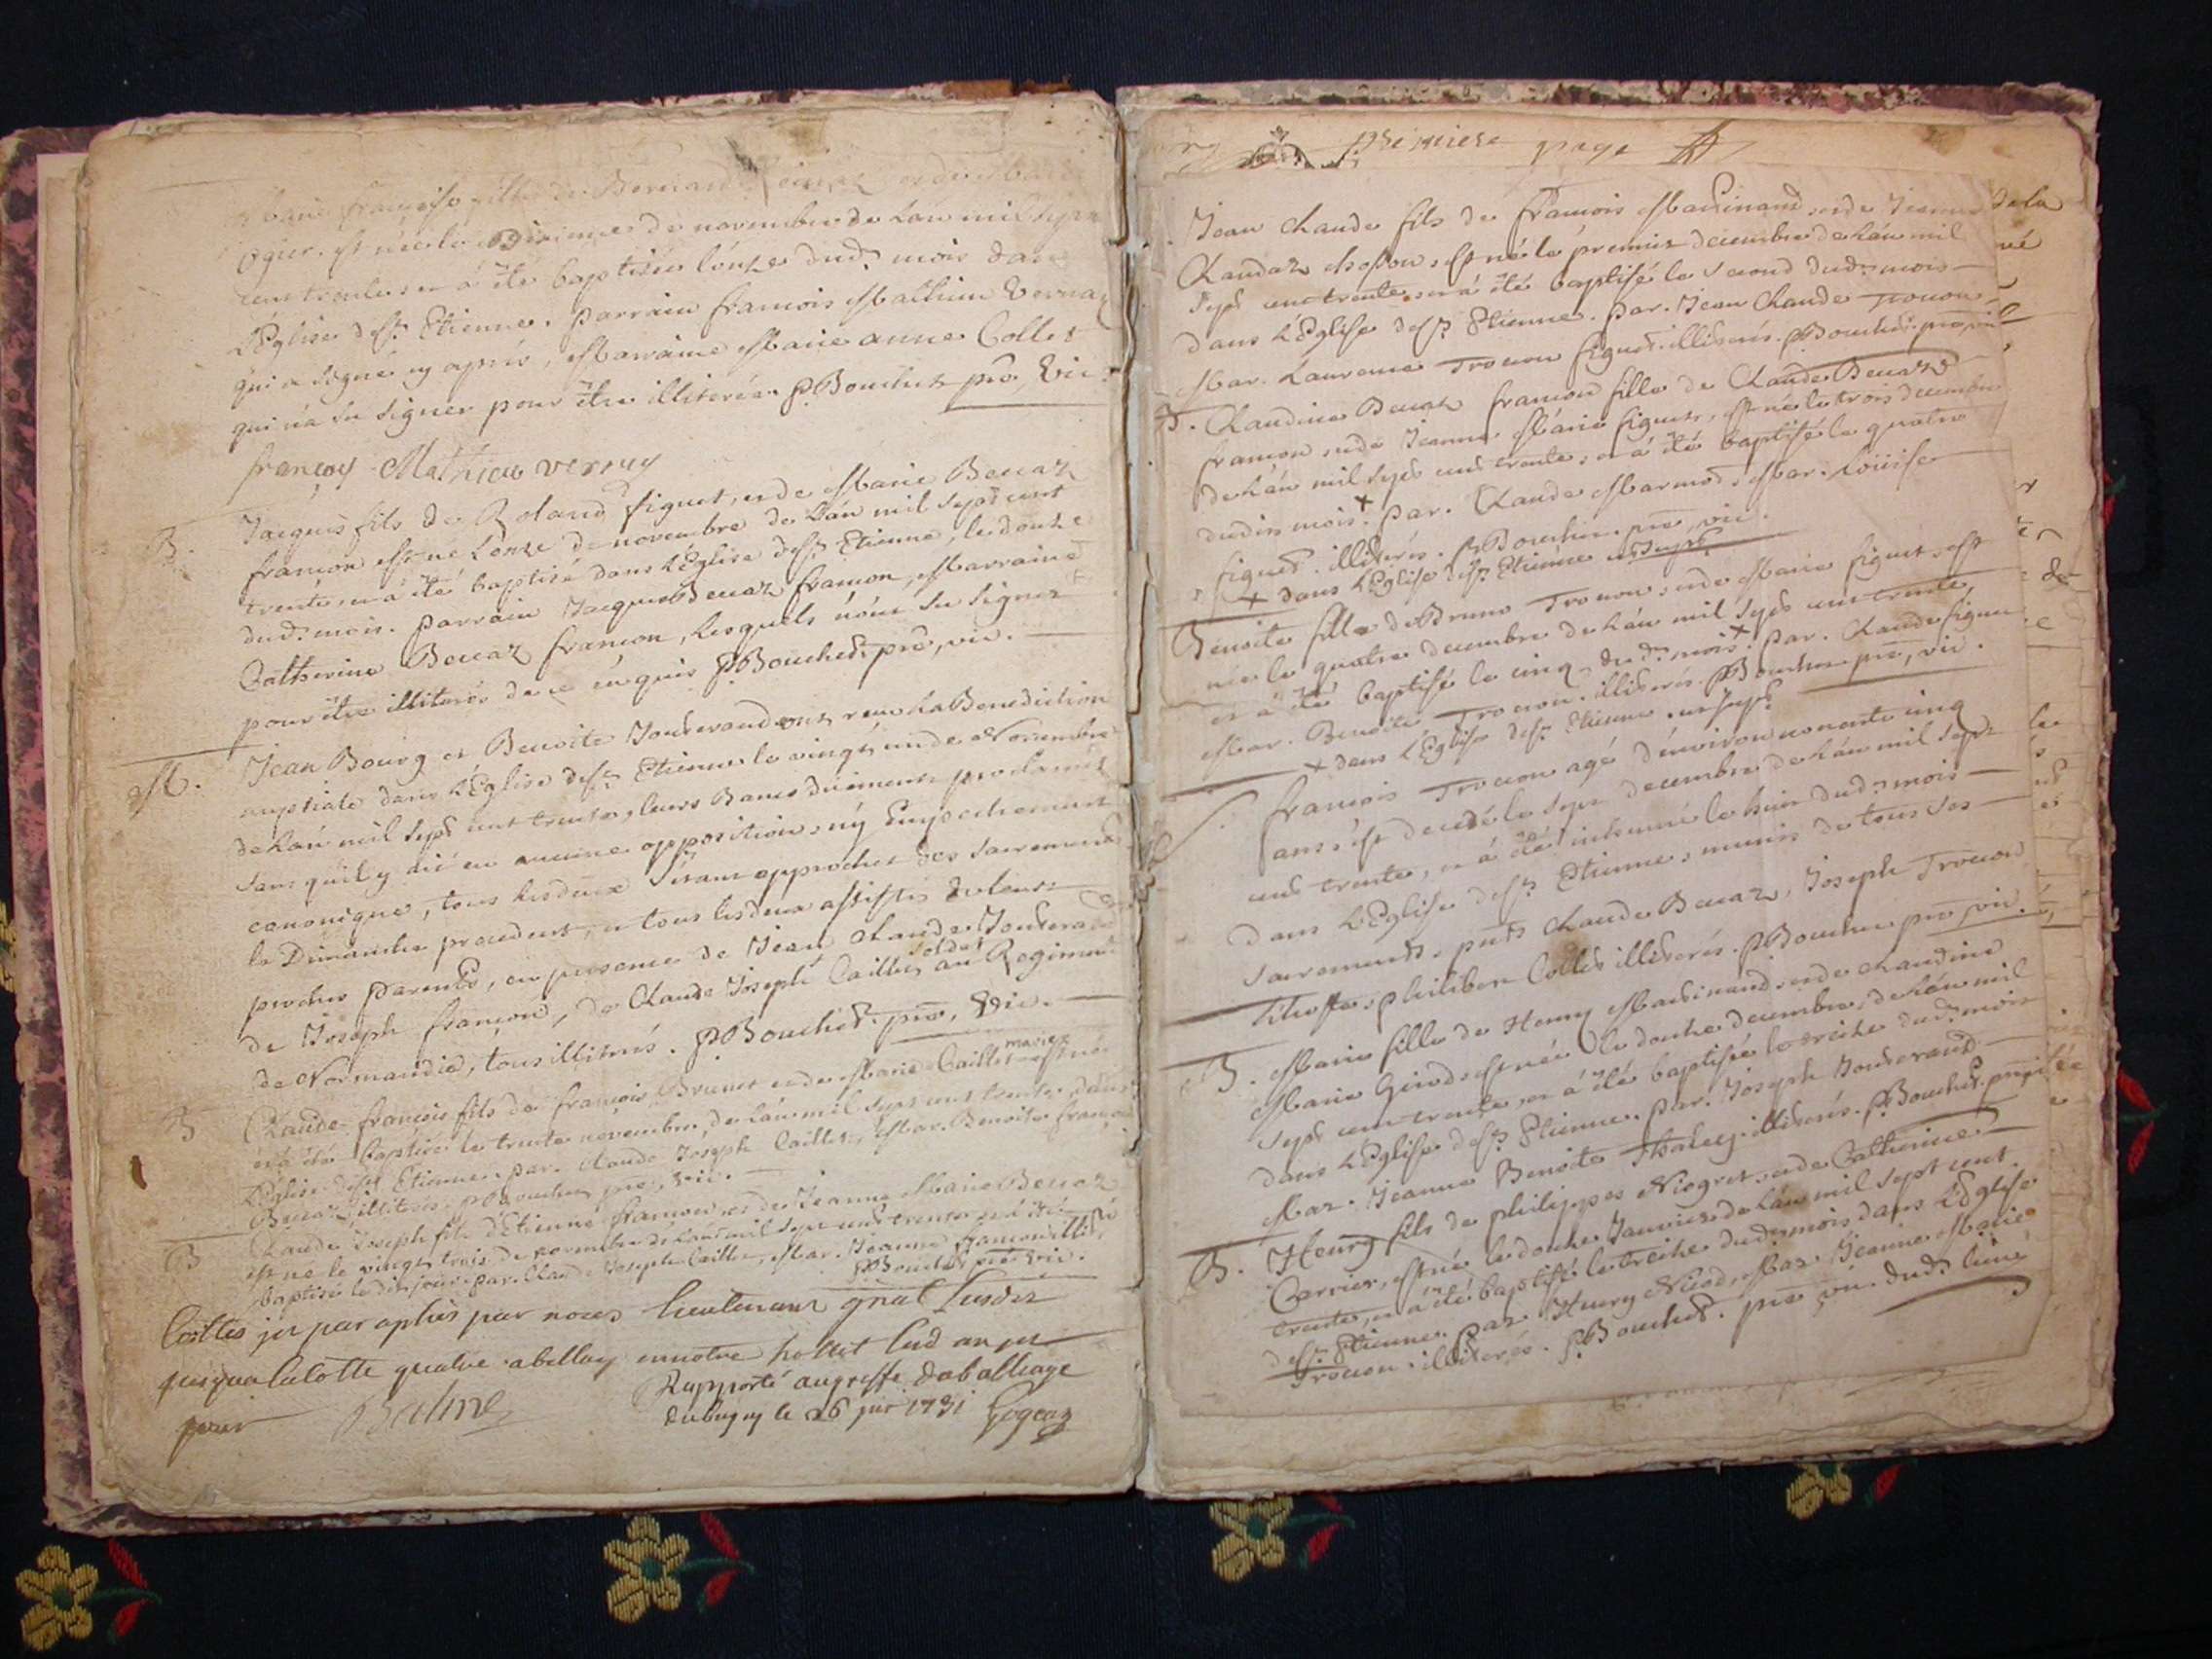 françoise fille de Bernard et de Marie
Ogier est née le Dixieme de novembre de L'an mil sept
cens trente, et á été baptisée l'onze dud. mois dans
L'Eglise de St Etienne. parrain francois Mathieu Vernay
qui a signé cy aprés, Marraine Marie anne Collet
qui n'a su signer pour être illiterée. PBouchet pre, Vic.
françoy Mathieu verney
B. Jacques fils de Roland figuet, et de Marie Beccaz
françon est né l'onze de novembre de L'an mil sept cent
trente, et á été baptisé dans L'Eglise de St Etienne, le douze
dud. mois. parrain Jacques Beccaz françon, Marraine
Catherine Beccaz françon, lesquels n'ont su signer
pour être illiterés de ce enquis PBouchet pre, vic.
M. Jean Bourg et Benoite Jouterand ont reçu La Benediction
nuptiale dans L'Eglise de St Etienne le vingt un de Novembre
de L'an mil sept cent trente, leurs Bancs düement proclamés
sans qu'il y ait eu aucune opposition, ny Empechement
canonique, tous les deux s'etant approchés des sacrements
le Dimanche precedent, et tous les deux assistés de leurs
proches parents, en presence de Jean Claude Jouterand
de Joseph françon, de Claude Joseph Caillet soldat au Regiment
de Normandie, tous illiterés. PBouchet pre, Vic.
B Claude françois fils de françois Brunet et de Marie Caillet mariez est né
et á été baptisé le trente novembre, de L'an mil sept cent trente, dans
L'Eglise de St Etienne. par. Claude Joseph Caillet, Mar. Benoite françon
Beccaz illiterés. PBouchet pre, vic.
B Claude Joseph fils d'Etienne françon, et de Jeanne Marie Beccaz
est né le vingt trois de novembre de L'an mil sept cent trente et á été
baptisé le dit jour. par. Claude Joseph Caillet, Mar. Jeanne françon illiterés
PBouchet pre vic.
Cottes et paraphés par nous lieutenant gnal
jusqua la cotte quatre abellay en notre hotel
Balme
Rapporté au greffe du balliage
du bugey le 26 1731
premiere page
Jean Claude fils de françois Martinand, et de Jeanne
Claudaz est né le premier decembre de L'an mil
sept cent trente, et á été baptisé le second dud. mois
dans L'Eglise de St Etienne. par. Jean Claude Trocon
Mar. Laurence Trocon figuet. illiterés. PBouchet pre, vic
B. Claudine Beccaz françon fille de Claude Beccaz
françon, et de Jeanne Marie figuet, est née le trois decembre
de L'an mil sept cent trente, et á été baptisé le quatre
dudit mois.+ par. Claude Marmod, Mar. Loüise
figuet. illiterés. PBouchet pre, vic.
+ dans L'Eglise de St Etienne
Benoite fille de Bruno Trocon, et de Marie figuet, est
née le quatre decembre de L'an mil sept cent trente,
et á été baptisé le cinq dud. mois+. par. Claude figuet
Mar. Benoite Trocon. illiterés. PBouchet pre, vic.
+ dans L'Eglise de St Etienne
françois Trocon agé d'environ nonante cinq
ans est decedé le sept decembre de L'an mil sept
cent trente, et á été inhumé le huit dud. mois
dans L'Eglise de St Etienne, munis de tous ses
sacrements. pnts Claude Beccaz, Joseph Trocon
philibert Collet illiterés. PBouchet pre, vic.
B. Marie fille de Henry Martinand, et de Claudine
Marie Girod est née le douze decembre, de L'an mil
sept cent trente, et á été baptisée le treize dud. mois
dans L'Eglise de St Etienne. par. Joseph Jouterand
Mar. Jeanne Benoite Tharley. illiterés. PBouchet
B. Henry fils de philippes Niogret, et de Catherine
Carrier, est né le douze Janvier de L'an mil sept cent
trente, et á été baptisé le treize dud. mois dans L'Eglise
de St Etienne. par. Henry Niod, Mar. Jeanne Marie
Trocon. illiterés. PBouchet. pre vic. dud. lieu